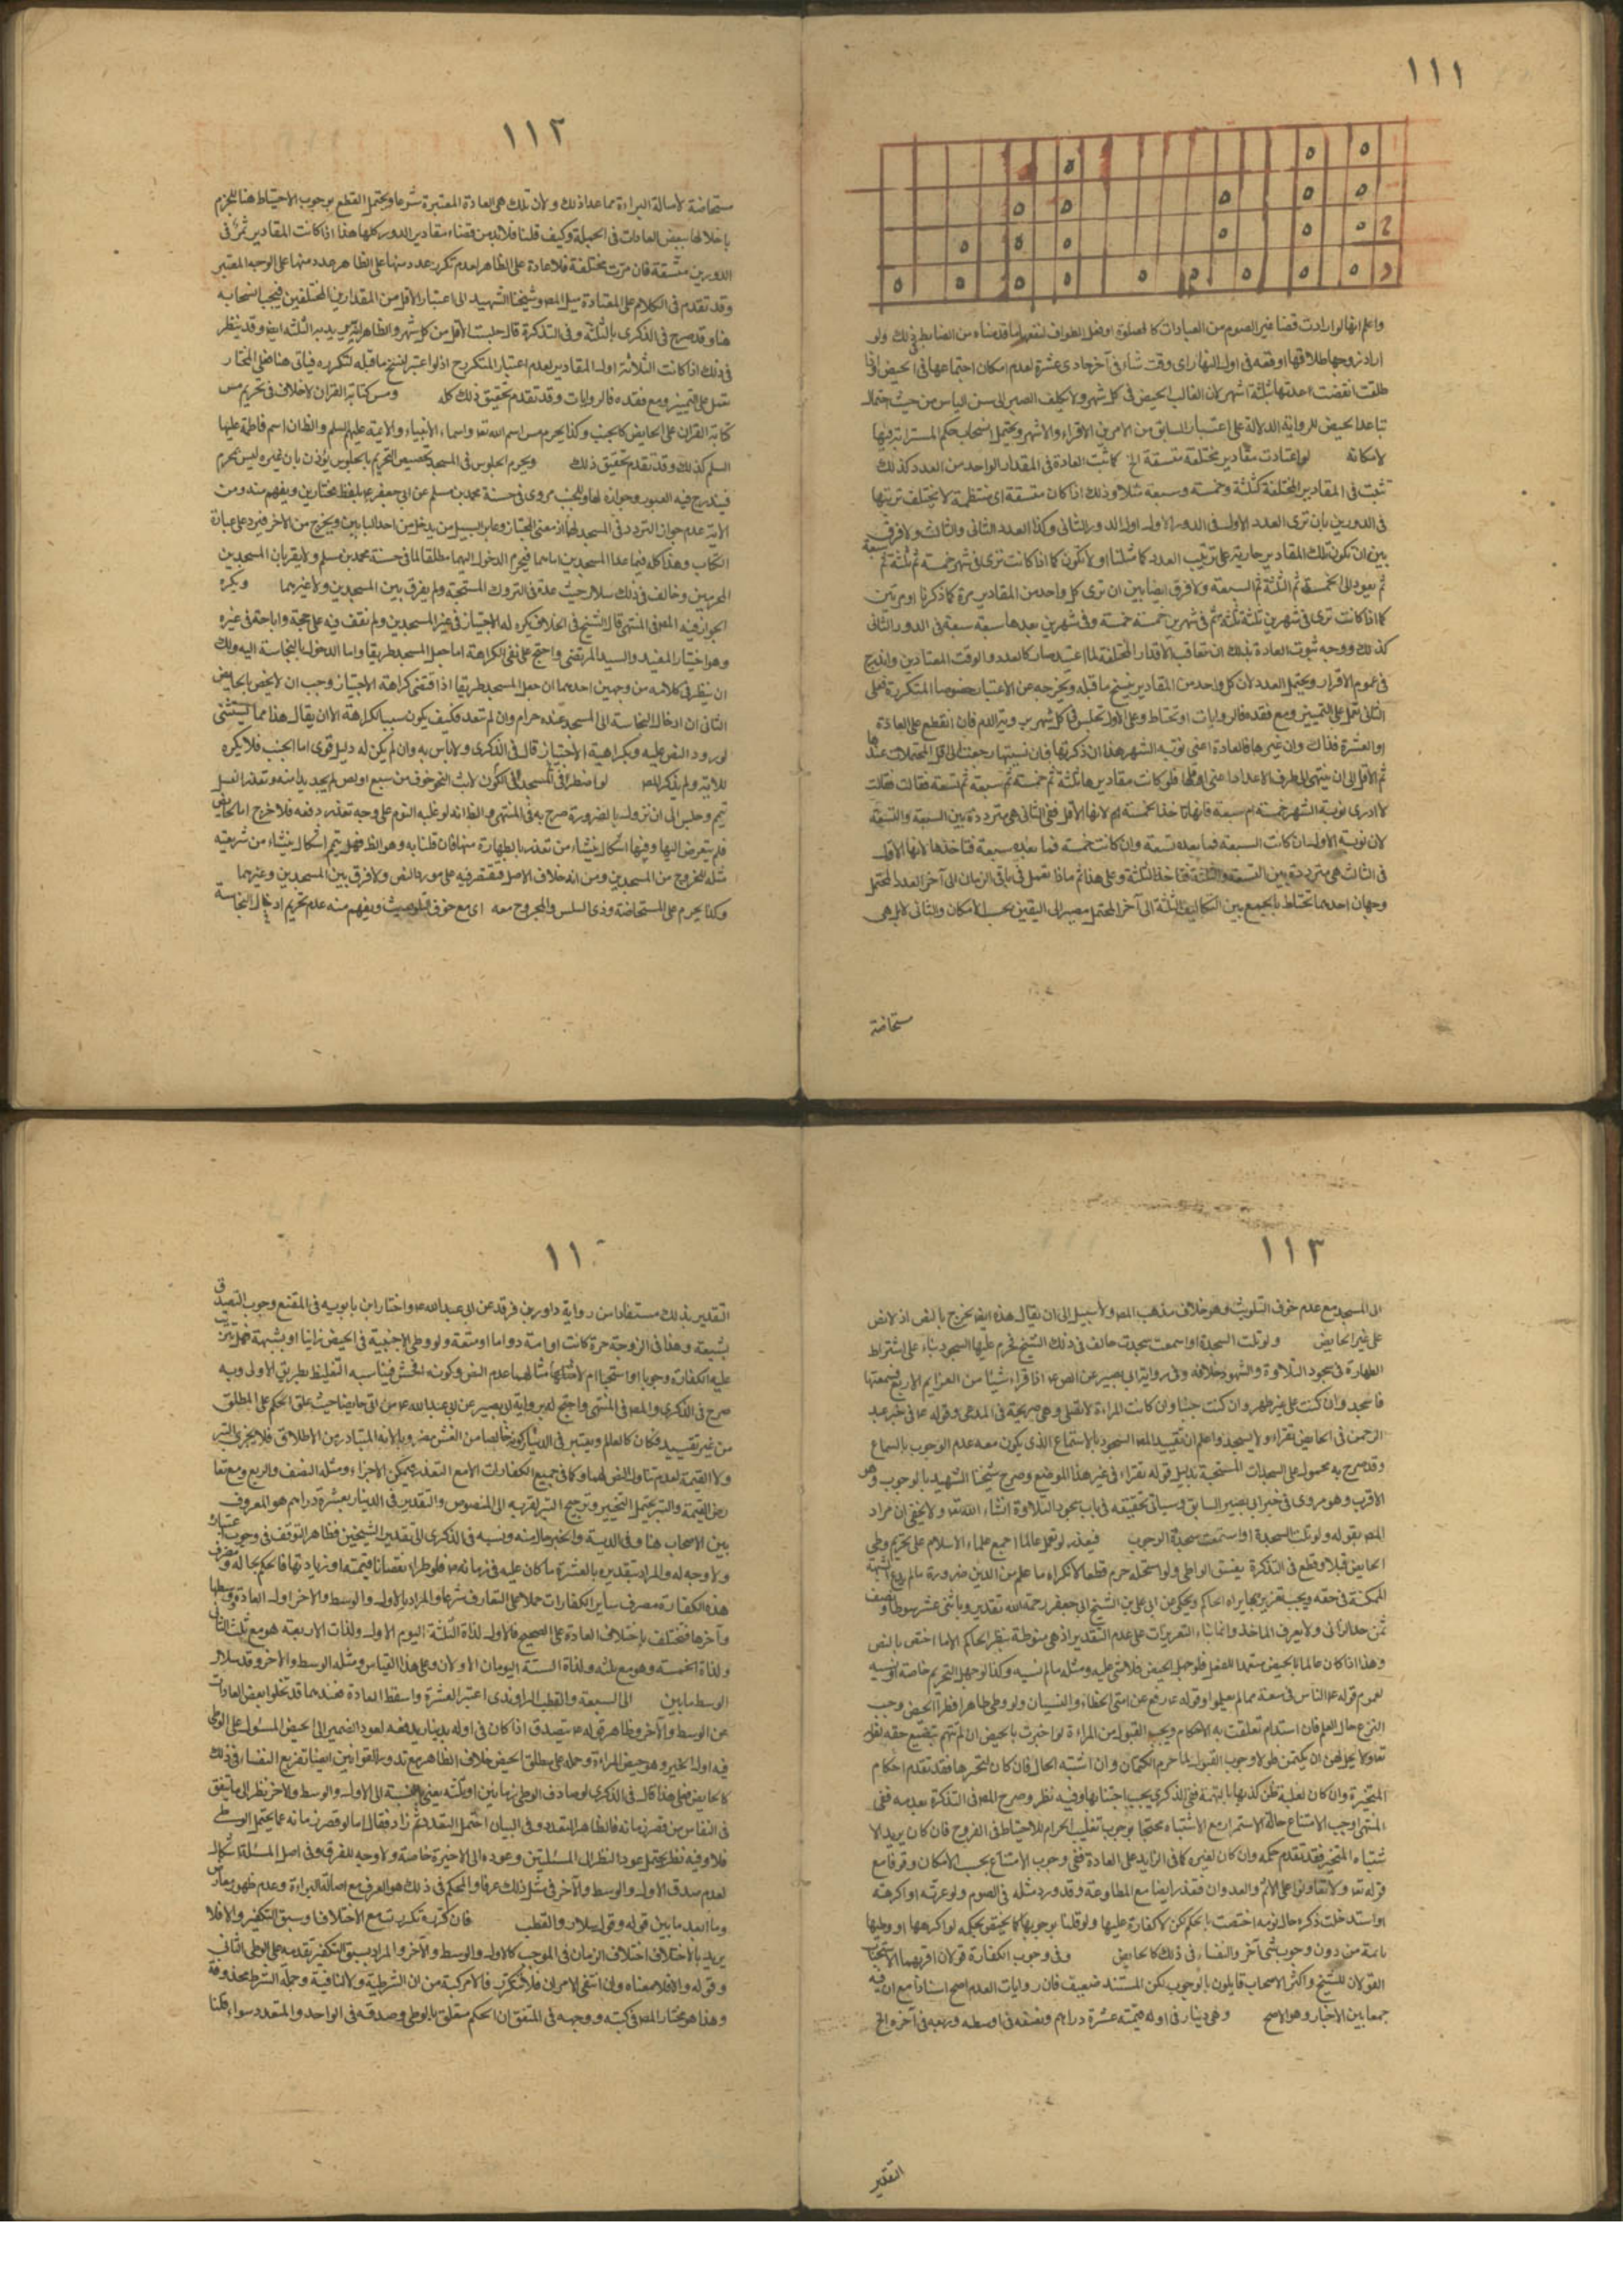 ١١١
واعلم انها لو ارادت قضاء غير الصوم من العبادات كالصلوة او فعل الطواف لنفعها ما قدمناه من الضابط في ذلك ولو
اراد زوجها طلاقها اوقعه في اول النهار اى وقت شاء في آخر حادى عشرة لعدم امكان اجتماعها في الحيض اذا
طلقت انقضت عدتها بثلثة اشهر لان الغالب الحيض في كل شهر ولا يكلف الصبر الى سن الياس من حيث احتمال
تباعد الحيض للرواية الدلالة على اعتبار السابق من الامرين الاقراء والاشهر ويحتمل انسحاب حكم المسترابة فيها
لامكانه لو اعتادت مقادير مختلفة متسقة الخ كما تثبت العادة في المقدار الواحد من العدد كذلك
تثبت في المقادير المختلفة كثلثة وخمسة وسبعة مثلا وذلك اذا كان متسقة اى منتظمة لا يختلف ترتيبها
في الدورين بان ترى العدد الاول في الدور الاول اول الدور الثانى وكذا العدد الثانى والثالث ولا فرق
بين ان يكون تلك المقادير جارية على ترتيب العدد كما مثلنا او لا يكون كما اذا كانت ترى في شهر خمسة ثم ثلثة ثم سبعة
ثم يعود الى الخمسة ثم الثلثة ثم السبعة ولا فرق ايضا بين ان ترى كل واحد من المقادير مرة كما ذكرنا او مرتين
كما اذا كانت ترى في شهرين ثلثة ثلثة ثم في شهرين خمسة خمسة وفي شهرين بعدها سبعة سبعة في الدور الثانى
كذلك ووجه ثبوت العادة بذلك ان تعاقب الاقدار المختلفة لما اعتيد صار كالعدد والوقت المعتادين واندرج
في عموم الاقراء ويحتمل العدد لان كل واحد من المقادير ينسخ ما قبله ويخرجه عن الاعتبار خصوصا المتكررة فعلى
الثانى تعمل على التمييز ومع فقده فالروايات او تحتاط وعلى الاول تجلس في كل شهر بـ الدم فان انقطع على العادة
او العشرة فذاك وان عبرها فالعادة اعنى نوبة الشهر هذا ان ذكرتها فان نسيتها رجعت الى اقل المحتملات عندها
ثم الاقل الى ان ينتهى الى طرف الاعداد اعنى فلو كانت مقاديرها ثلثة ثم خمسة ثم سبعة ثم تسعة فقالت
لا ادرى نوبة الشهر خمسة ام سبعة فانها تاخذ الخمسة لانها الاقل ففى الثانى هى مترددة بين السبعة والتسعة
لان نوبة الاول ان كانت السبعة فما بعده تسعة وان كانت خمسة فما بعده سبعة فتاخذها لانها الاقل
في الثالث هى مترددة بين التسعة والثلثة فتاخذ الثلثة وعلى هذا ثم ماذا تعمل في باقى الزمان الى آخر العدد المحتمل
وجهان احدهما تحتاط بالجمع بين التكاليف الثلثة الى آخر المحتمل مصير الى اليقين بحسب الامكان والثانى لا بل هى
مستحاضة
١١٢
مستحاضة لاصالة البراءة مما عدا ذلك ولان تلك هى العادة المعتبرة شرعا ويحتمل القطع بوجوب الاحتياط هنا للجزم
باخلالها ببعض العادات في الجملة وكيف قلنا فلا بد من قضاء مقادير الدور كلها هذا اذا كانت المقادير تمر في
الدورين متسقة فان مرت مختلفة فلا عادة على الظاهر لعدم تكرر عدد منها على الظاهر عدد منها على الوجه المعتبر
وقد تقدم في الكلام على المعتادة ميل المص وشيخنا الشهيد الى اعتبار الاقل من المقدارين المختلفين فيجب انسحابه
هنا وقد صرح في الذكرى بالثلثة وفى التذكرة قال جلست الاقل من كل شهر والظاهر يريد به الثلثة ايضا وقد ينظر
في ذلك اذا كانت الثلاثة اول المقادير لعدم اعتبار المتكرر ح اذ لو اعتبر لنسخ ما قبله لتكرره فياتى هنا فعلى المختار
تعمل على التمييز ومع فقده فالروايات وقد تقدم تحقيق ذلك كله ومس كتابة القران لا خلاف في تحريم مس
كتابة القران على الحايض كالجنب وكذا يحرم مس اسم الله تعا واسماء الانبياء والايمة عليهم السلم والظ ان اسم فاطمة عليها
السلم كذلك وقد تقدم تحقيق ذلك ويحرم الجلوس في المسجد تخصيص التحريم بالجلوس يؤذن بان غيره ليس بحرم
فيندرج فيه العبور وجوازه لها وللجنب مروى في حسنة محمد بن مسلم عن ابى جعفر ع بلفظ مختارين ويفهم منه ومن
الاية عدم جواز التردد في المسجد لهما اذ معنى المجتاز وعابر السبيل من يدخل من احد البابين ويخرج من الآخر فيرد على عبارة
الكتاب وهذا كله فيما عدا المسجدين اما هما فيحرم الدخول اليهما مطلقا لما في حسنة محمد بن مسلم ولا يقربان المسجدين
الحرمين وخالف في ذلك سلار حيث عده في التروك المستحبة ولم يفرق بين المسجدين ولا غيرهما ويكره
الجواز فيه المص في المنتهى قال الشيخ في الخلاف يكره له الاجتياز في غير المسجدين ولم نقف فيه على حجة واباحة في غيره
وهو اختيار المفيد والسيد المرتضى واحتج على نفى الكراهة اما جعل المسجد طريقا واما الدخول بالنجاسة اليه ولك
ان ينظر في كلامه من وجهين احدهما ان جعل المسجد طريقا اذا اقتضى كراهة الاجتياز وجب ان لا يخص بالحايض
الثانى ان ادخال النجاسة الى المسجد عنده حرام وان لم تتعد فكيف يكون سببا لكراهة الا ان يقال هذا مما يستثنى
لورود النص عليه وبكراهية الاجتياز قال في الذكرى ولا باس به وان لم يكن له دليل قوى اما الجنب فلا يكره
للاية ولم يذكر المص لو اضطر في المسجد الى الكون لابث لنحو خوف من سبع او لص لم يجد بدا منه وتعذر الغسل
تيمم وجلس الى ان تزول الضرورة صرح به في المنتهى والظ انه لو غلبه النوم على وجه تعذر دفعه فلا حرج اما الحايض
فلم يتعرض اليها وفيها اشكال ينشاء من تعذر الطهارة منها فان قلنا به وهو الظ فهل يتمم اشكال ينشاء من شرعية
مثله للخروج من المسجدين ومن انه خلاف الاصل فيقتصر فيه على مورد النص ولا فرق بين المسجدين وغيرهما
وكذا يحرم على المستحاضة وذى السلس والمجروح معه اى مع خوف التلويث ويفهم منه عدم تحريم ادخال النجاسة
١١٣
الى المسجد مع عدم خوف التلويث وهو خلاف مذهب المص ولا سبيل الى ان يقال هذه ايضا يخرج بالنص اذ لا نص
على غير الحايض ولو تلت السجدة او استمعت سجدت خالف في ذلك الشيخ فحرم عليها السجود بناء على اشتراط
الطهارة في سجود التلاوة والمشهور خلافه وفى رواية ابى بصير عن الص ع اذا قراء شيئا من العزايم الاربع فسمعتها
فاسجد وان كنت على غير طهر وان كنت جنبا وان كانت المراءة لا تصلى وهى صريحة في المدعى وقوله ع في خبر عبد
الرحمن في الحايض تقراء ولا تسجد واعلم ان تقييد المص السجود بالاستماع الذى يكون معه عدم الوجوب بالسماع
وقد صرح به محمول على السجدات المستحبة بدليل قوله تقراء في غير هذا الموضع وصرح شيخنا الشهيد بالوجوب وهو
الاقرب وهو مروى في خبر ابى بصير السابق وسياتى تحقيقه في باب سجود التلاوة انشاء الله تعا ولا يخفى ان مراد
المص بقوله ولو تلت السجدة او استمعت سجدة الوجوب فيعذر لو فعل عالما اجمع علماء الاسلام على تحريم وطى
الحايض قبلا وقطع في التذكرة بفسق الواطى ولو استحله حرم قطعا لانكاره ما علم من الدين ضرورة ما لم يدع الشبهة
الممكنة في حقه ويجب تعزيره بما يراه الحاكم ويحكى عن ابى على بن الشيخ ابى جعفر رحمة الله تقديره باثنى عشر سوطا ونصف
ثمن حد الزانى ولا يعرف الماخذ وانما بناء التعزيرات على عدم التقدير اذ هى منوطة بنظر الحاكم الا ما اختص بالنص
وهذا اذا كان عالما بالحيض متعمدا للفعل فلو جهل الحيض فلا شى عليه ومثله ما لو نسيه وكذا لو جهل التحريم خاصة او نسيه
لعموم قوله ع الناس في سعة مما لم يعلموا وقوله ع رفع عن امتى الخطاء والنسيان ولو وطى طاهرا فطرأ الحيض وجب
النزع حال العلم فان استدام تعلقت به الاحكام ويجب القبول من المراءة لو اخبرت بالحيض ان لم تتهم بتضييع حقه لقوله
تعا ولا يحل لهن ان يكتمن ولولا وجوب القبول لما حرم الكتمان وان اشتبه الحال فان كان لتحيرها فقد تقدم احكام
المتحيرة وان كان لغلبة ظن كذبها بالتهمة ففى الذكرى يجب اجتنابها وفيه نظر وصرح المص في التذكرة بعدمه ففى
المنتهى اوجب الامتناع حالة الاستمرار مع الاشتباه محتجا بوجوب تغليب الحرام للاحتياط في الفروج فان كان يريد الا
شتباه المتحيرة فقد تقدم حكمه وان كان لغيره كما في الزايد على العادة ففى وجوب الامتناع بحسب الامكان وقوفا مع
قوله تعا ولا تعاونوا على الاثم والعدوان فتعذر ايضا مع المطاوعة وقد ورد مثله في الصوم ولو غرته او اكرهته
او استدخلت ذكره حال نومه اختصت بالحكم لكن لا كفارة عليها ولو قلنا بوجوبها كما يختص بحكمه لو اكرهها او وطيها
نايمة من دون وجوب شى آخر والنفساء في ذلك كالحايض وفى وجوب الكفارة قولان اقربهما الاستحباب
القولان للشيخ واكثر الاصحاب قايلون بالوجوب لكن المستند ضعيف فان روايات العدم اصح اسنادا مع ان فيه
جمعا بين الاخبار وهو الاصح وهى دينار في اوله قيمته عشرة دراهم ونصفه في اوسطه وربعه في آخره الخ
التقدير
١١
التقدير بذلك مستفاد من رواية داود بن فرقد عن ابى عبد الله ع واختار ابن بابويه في المقنع وجوب التصدق
بشبعة وهذا في الزوجة حرة كانت او امة دواما او متعة ولو وطى الاجنبية في الحيض زانيا او بشبهة فهل يترتب
عليه الكفارة وجوبا او استحبابا ام لا منشاءهما عدم النص وكونه افحش فيناسبه التغليظ بطريق الاولى وبه
صرح في الذكرى والمص في المنتهى واحتج له برواية ابى بصير عن ابى عبد الله ع من اتى حايضا حيث علق الحكم على المطلق
من غير تقييد فكان كالعالم ويعتبر في الدينار كونه خالصا من الغش مضروبا لانه المتبادر من الاطلاق فلا يجزى التبر
ولا القيمة لعدم تناول النص لهما وكما في جميع الكفارات الا مع التعذر فيمكن الاجزاء ومثله النصف والربع ومع تعا
رض القيمة والتبر يحتمل التخيير وترجيح التبر لقربه الى المنصوص والتقدير في الدينار بعشرة دراهم هو المعروف
بين الاصحاب هنا وفى الدية والخبر خال منه ونسبه في الذكرى الى تقدير الشيخين فظاهر التوقف في وجوب اعتباره
ولا وجه له والمراد بتقديره بالعشرة ما كان عليه في زمانه ص فلو طراء نقصان قيمته او زيادتها فالحكم بحاله ومصرف
هذه الكفارة مصرف ساير الكفارات حملا على المتعارف شرعا والمراد بالاول والوسط والاخر اول العادة ووسطها
وآخرها فتختلف باختلاف العادة على الصحيح فالاول لذاة الثلثة اليوم الاول ولذات الاربعة هو مع ثلث الثانى
ولذاة الخمسة وهو مع ثلثيه ولذاة الستة اليومان الاولان وعلى هذا القياس ومثله الوسط والآخر وقد سلار
الوسط ما بين الى السبعة والقطب الراوندى اعتبر العشرة واسقط العادة فعندهما قد تخلوا بعض العادات
عن الوسط والآخر وظاهر قوله ع يتصدق اذا كان في اوله بدينار يدفعه لعود الضمير الى الحيض المسئول على الوطى
فيه اول الخبر وهو حيض المراءة وحمله على مطلق الحيض خلاف الظاهر مع تدور القوانين ايضا تفريع النفساء في ذلك
كالحايض فعلى هذا قال في الذكرى لو صادف الوطى زمانين او ثلثه يعنى بالنسبة الى الاول والوسط والآخر نظرا الى ما يتفق
في النفاس من قصر زمانه فالظاهر التعدد وفى البيان احتمل التعدد ثم زاد فقال اما لو قصر زمانه عما يحتمل الوسطى
فلا وفيه نظر يحتمل عود النظر الى المسئلتين وعوده الى الاخيرة خاصة ولا وجه للفرق وفى اصل المسئلة اشكال
لعدم صدق الاول والوسط والآخر في مثل ذلك عرفا والمحكم في ذلك هو العرف مع اصالة البراءة وعدم ظهور معارض
وما ابعد ما بين قوله وقول سلار والقطب فان كرره تكررت مع الاختلاف او سبق التكفير والا فلا
يريد بالاختلاف اختلاف الزمان في الموجب كالاول والوسط والآخر والمراد بسبق التكفير تقدمه على الوطى الثانى
وقوله والا فلا معناه وان انتفى الامران فلا تكرر فالا مركبة من ان الشرطية ولا النافية وجملة الشرط محذوفة
وهذا هو مختار المص في كتبه ووجهه في المتفق ان الحكم معلق بالوطى وصدقه في الواحد والمتعدد سواء قلنا